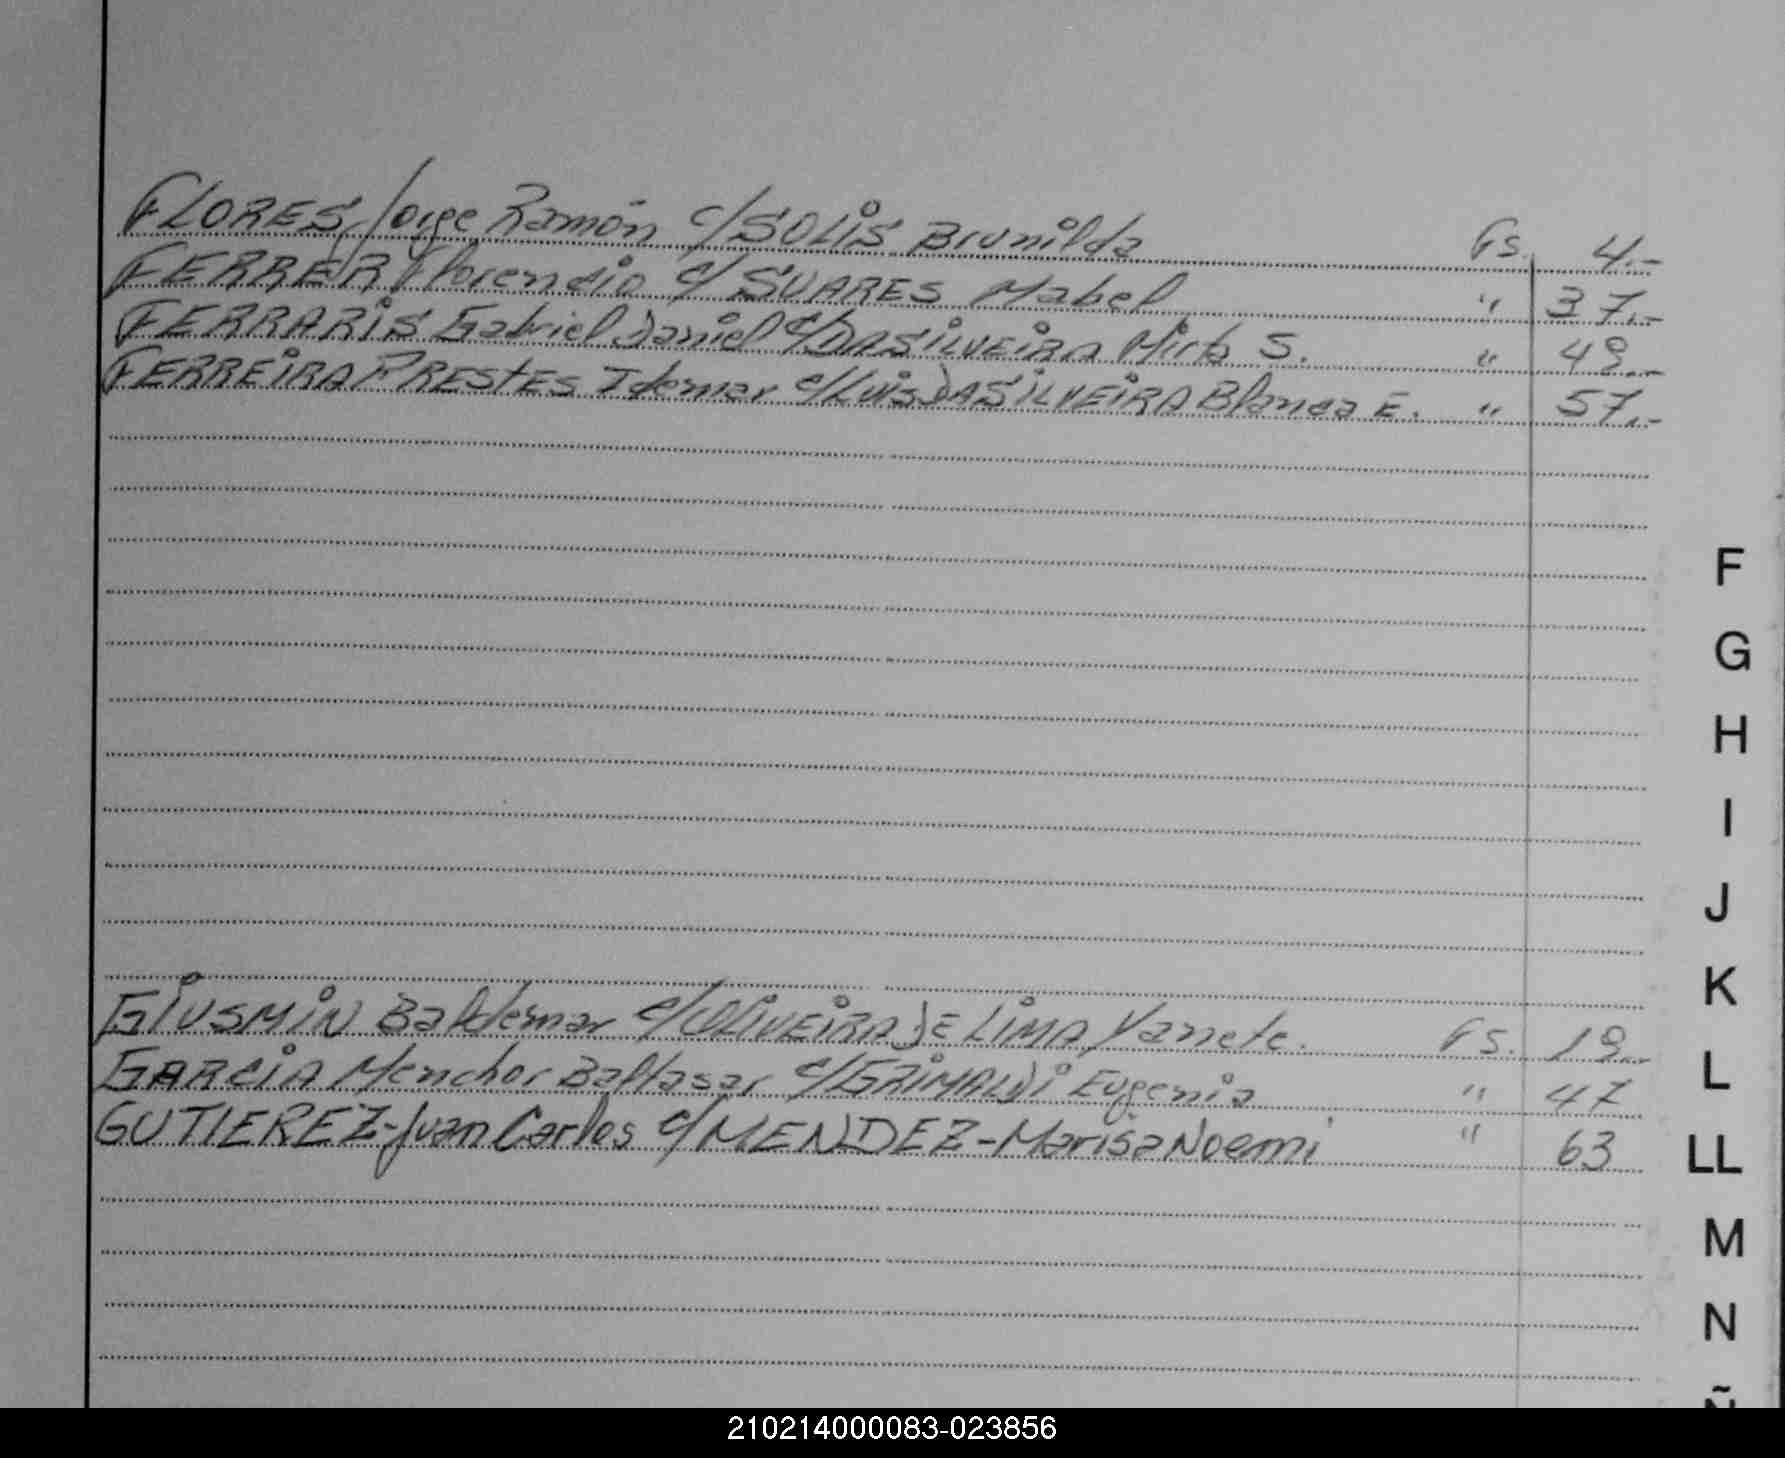 FLORES Jorge Ramón c/SOLIS Brunilda Fs. 4.-
FERRER Florencio c/ SUARES Mabel " 37.-
FERRARIS Gabriel Daniel c/DASILVEIRA Mirta S. " 48.-
FERREIRA PRESTES Idemar c/LUIS DASILVEIRA Blanca E. " 57.-
F
G
H
I
J
K
GIUSMIN Baldemar c/OLIVEIRA DE LIMA Vanete. Fs. 18.-
GARCIA Menchor Baltasar c/GRIMALDI Eugenia " 47
L
GUTIEREZ-Juan Carlos c/MENDEZ-Marisa Noemi " 63
LL
M
N
Ñ
210214000083-023856